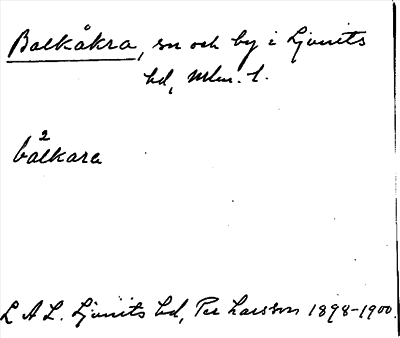 Balkåkra, sn och by i Ljunits
hd, Mlm. l.
bå²lkara
L A L. Ljunits hd, Per Larsson 1898-1900.